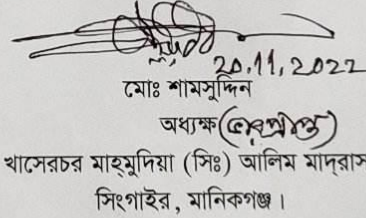 20.11.2022
মোঃ শামসুদ্দিন
অধ্যক্ষ (ভারপ্রাপ্ত)
খাসেরচর মাহ্মুদিয়া (সিঃ) আলিম মাদ্রাস
সিংগাইর, মানিকগঞ্জ।